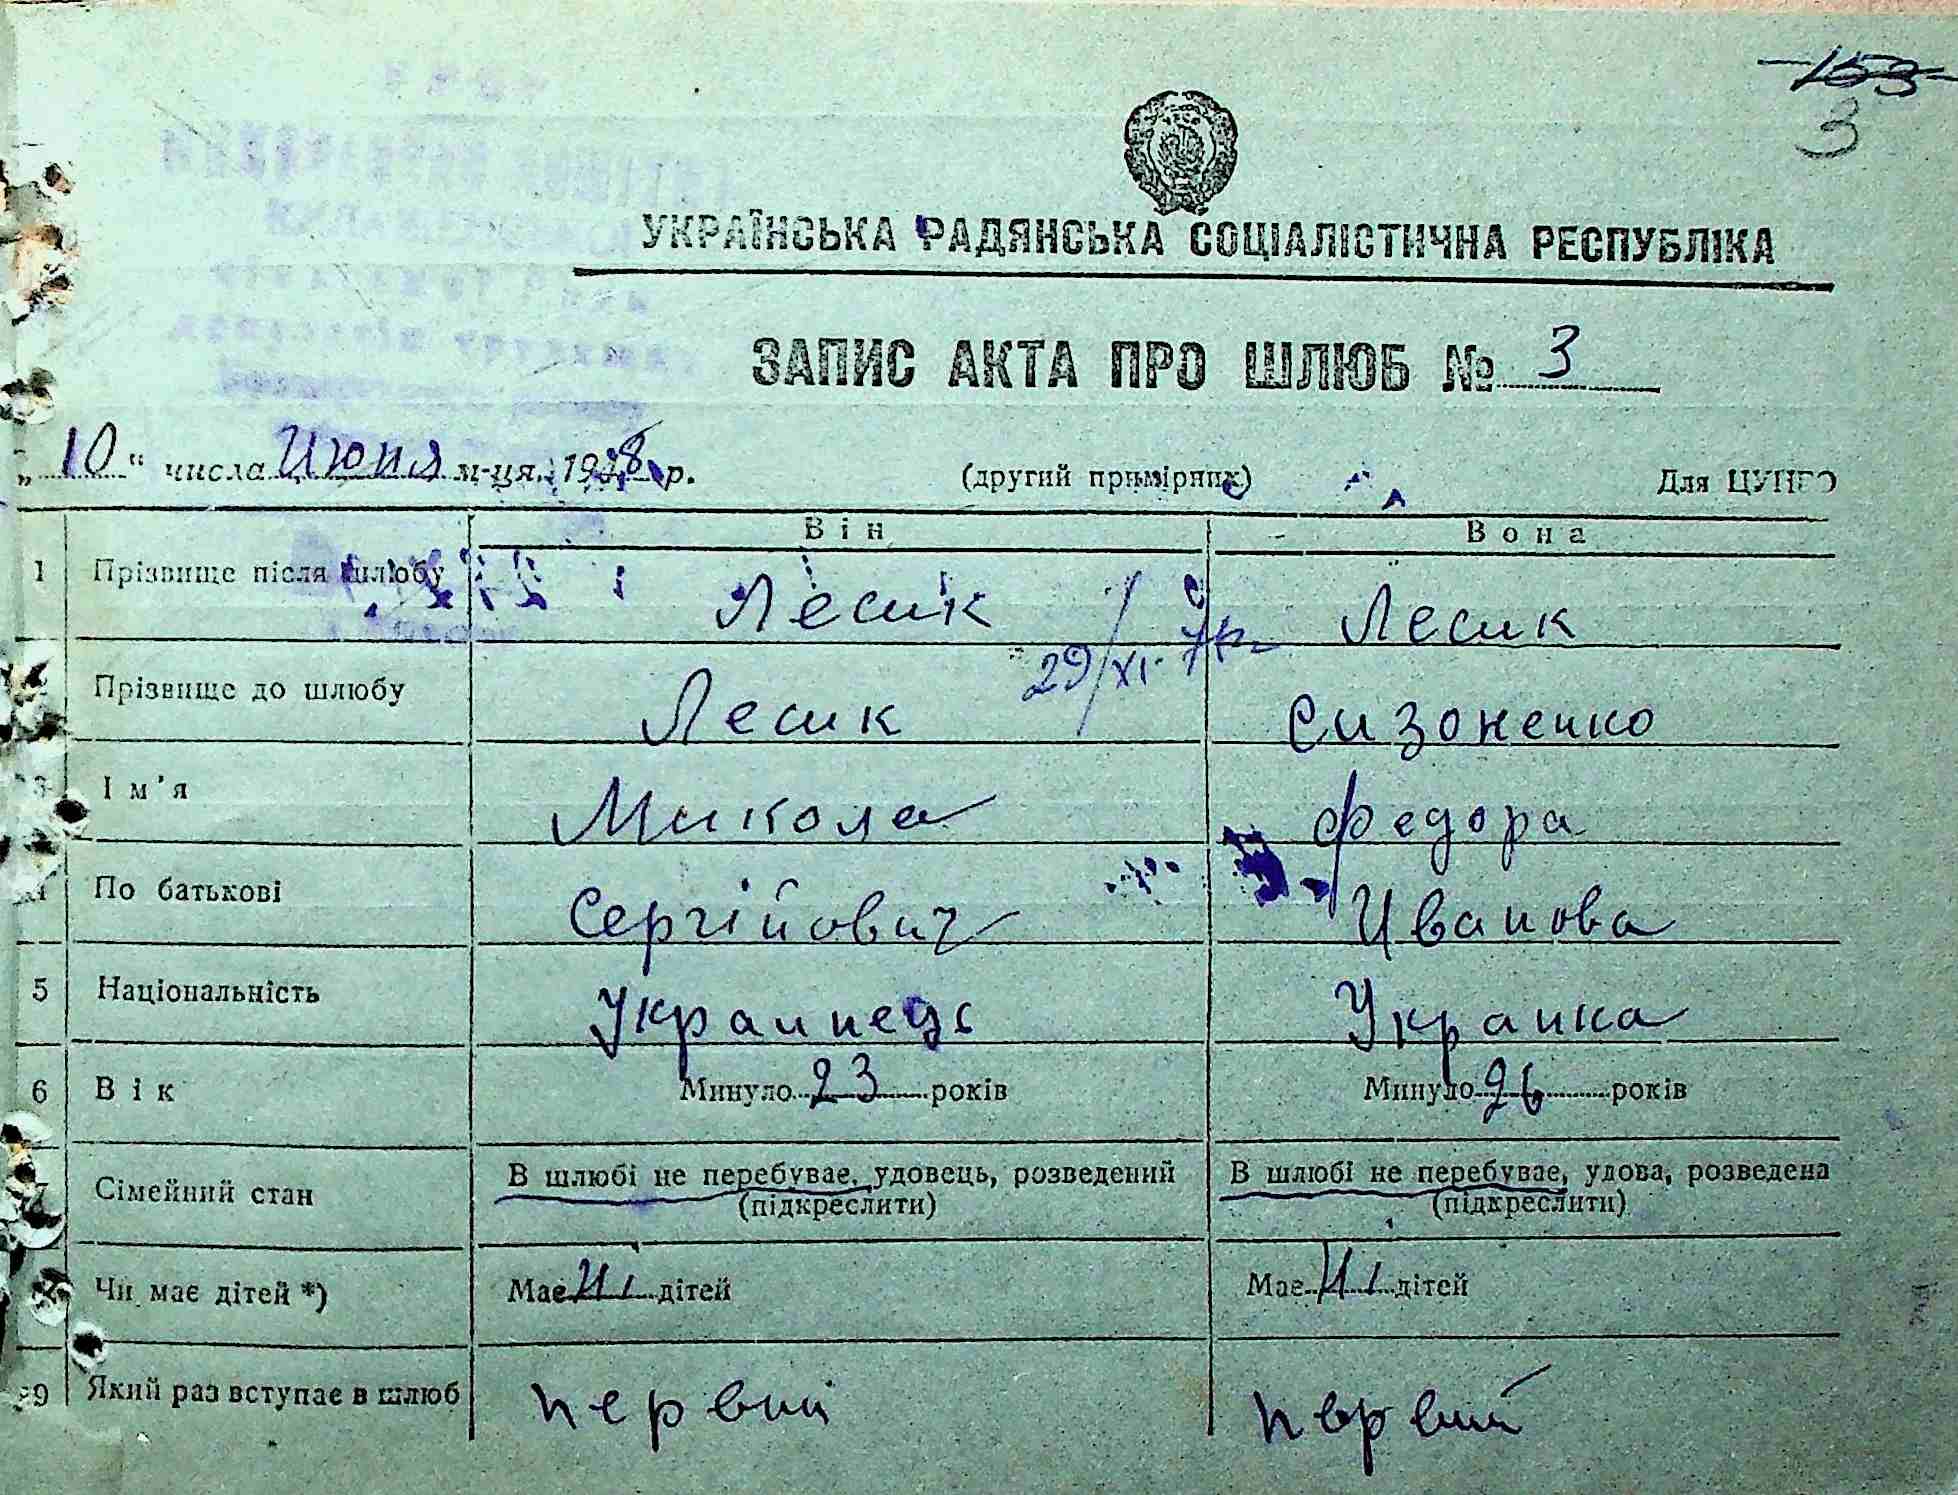 153
3
УКРАЇНСЬКА РАДЯНСЬКА СОЦІАЛІСТИЧНА РЕСПУБЛІКА
ЗАПИС АКТА ПРО ШЛЮБ № 3
„10“ числа Июня м-ця 1948 р. (другий примірник) Для ЦУНГО
Він Вона
1 Прізвище після шлюбу Лесик Лесик
29/XI
Прізвище до шлюбу Лесик Сизоненко
3 Ім'я Микола Федора
4 По батькові Сергійович Иванова
5 Національність Украинець Украинка
6 Вік Минуло 23 років Минуло 26 років
7 Сімейний стан В шлюбі не перебуває, удовець, розведений В шлюбі не перебуває, удова, розведена
(підкреслити) (підкреслити)
8 Чи має дітей *) Має ні дітей Має ні дітей
9 Який раз вступає в шлюб первий первий